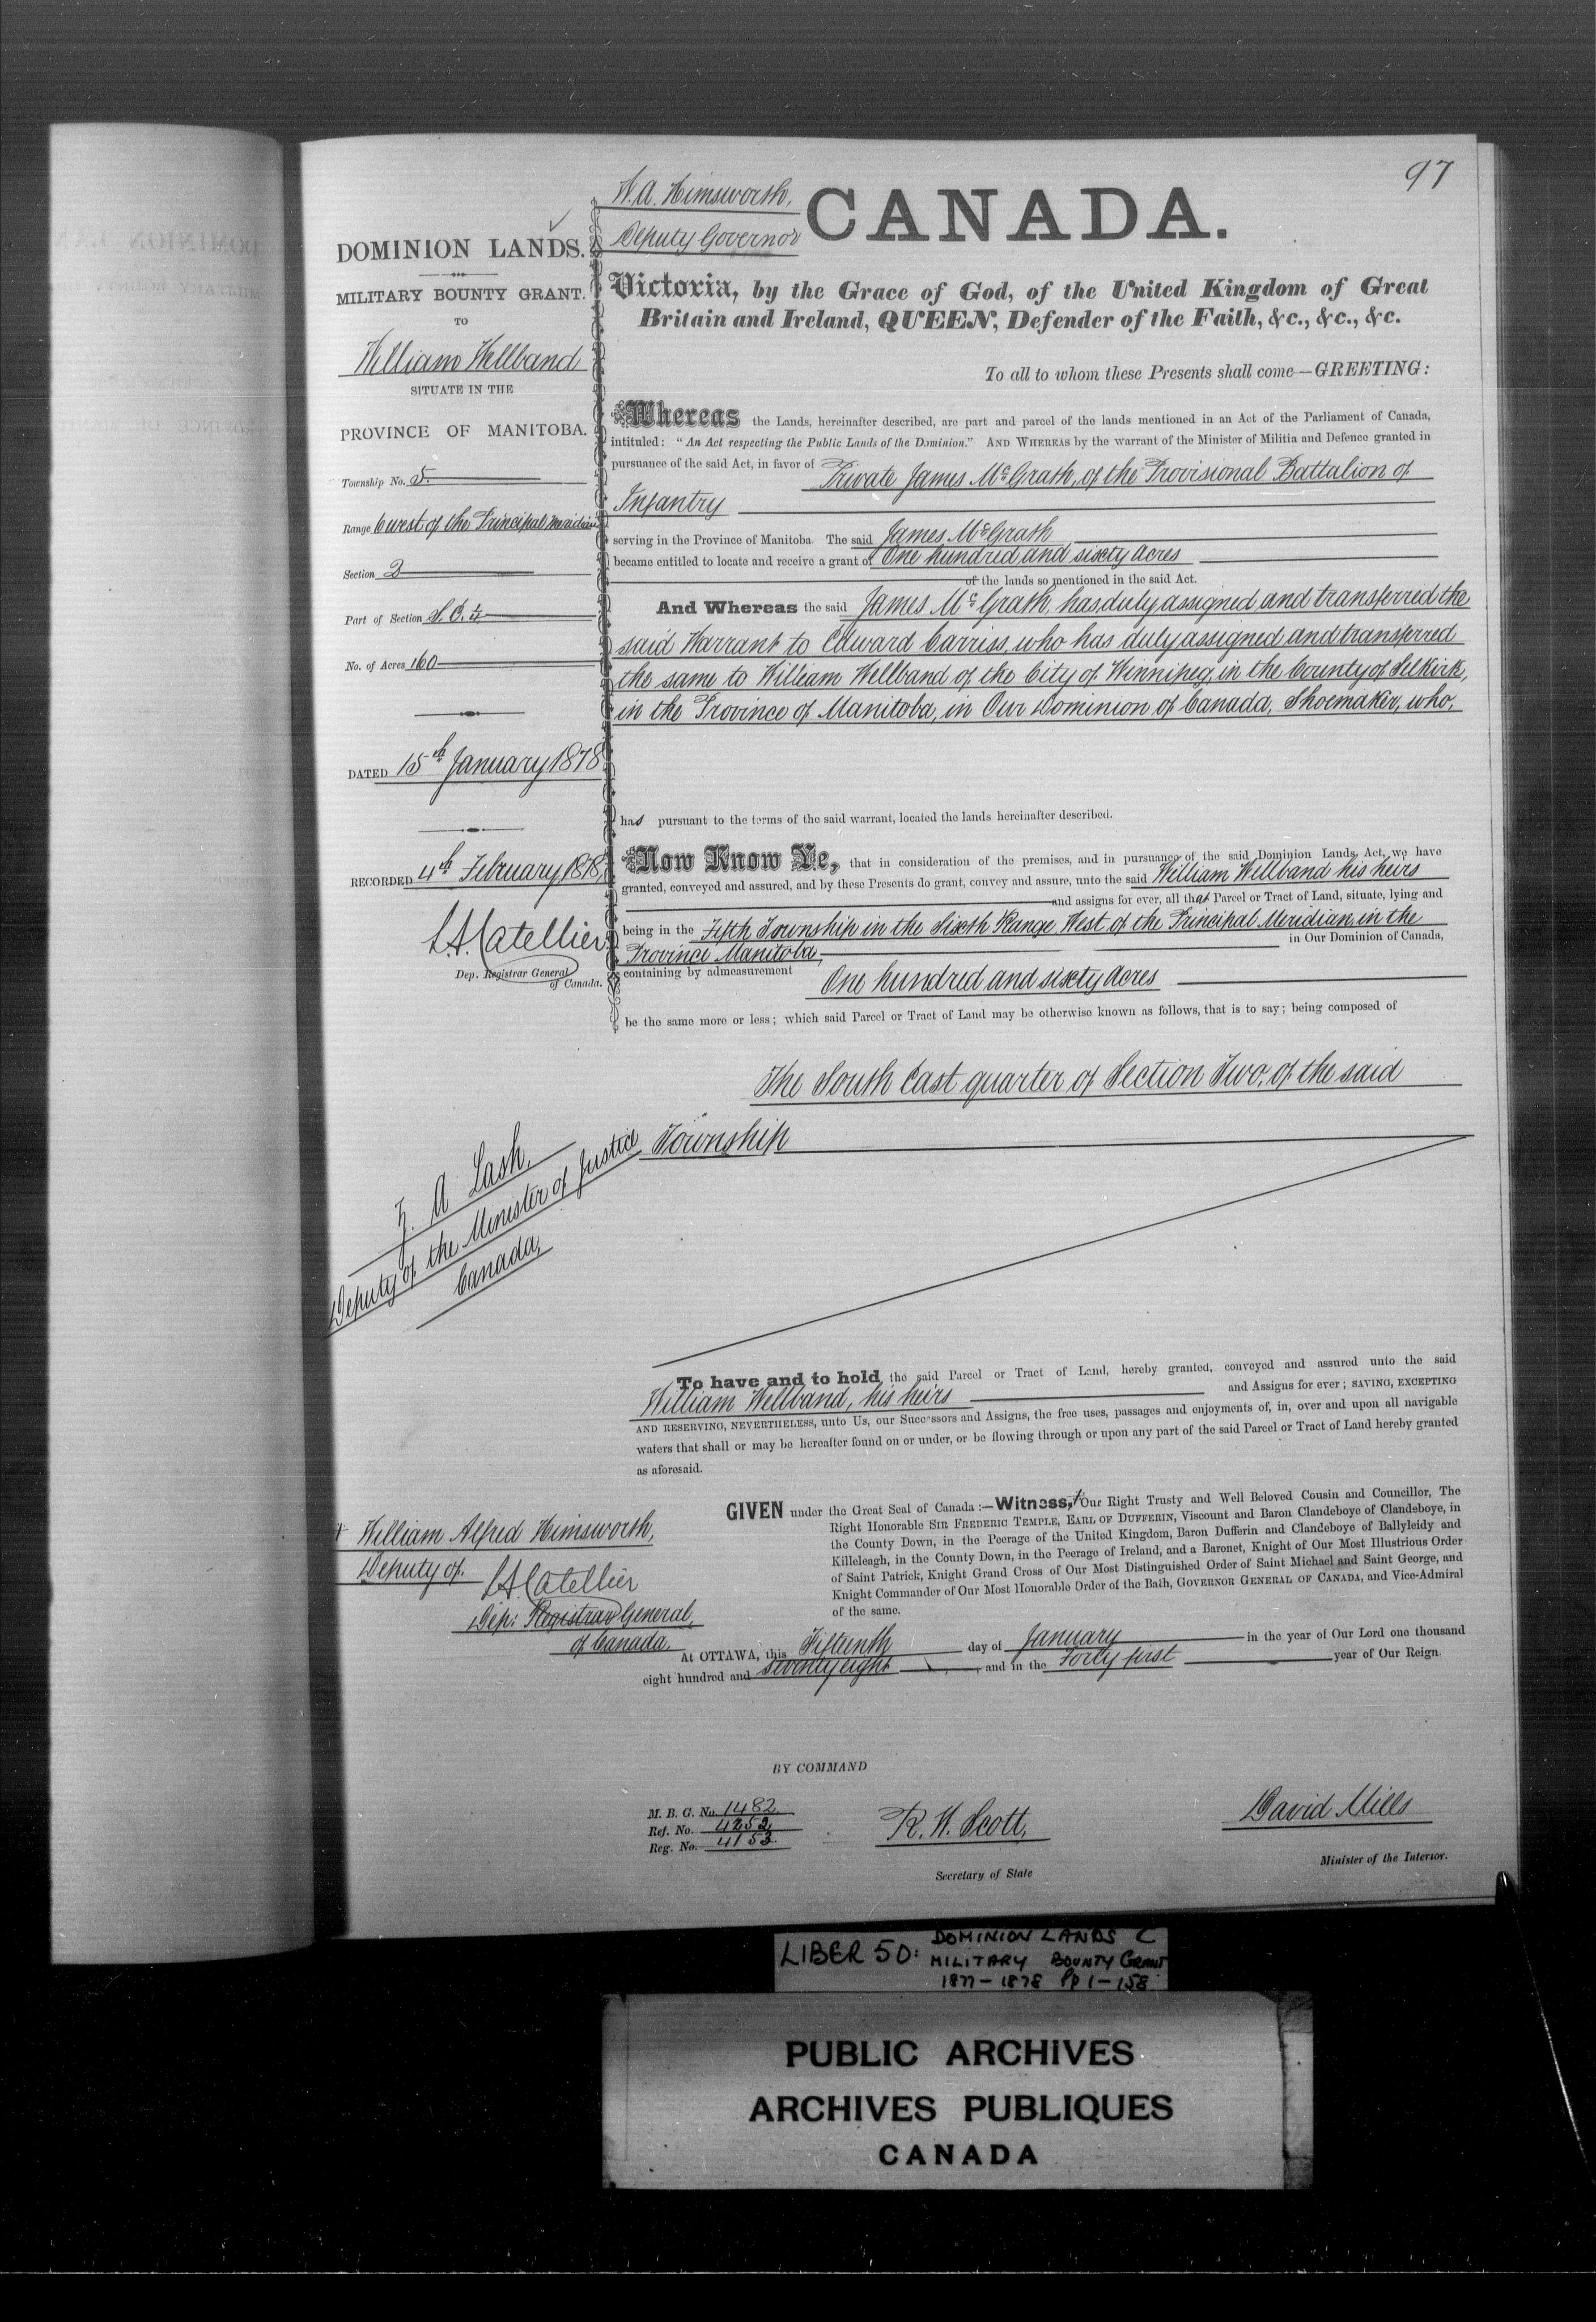 97
W. A. Himsworth,
Deputy Governor
CANADA.
DOMINION LANDS.
MILITARY BOUNTY GRANT.
TO
William Wellband
SITUATE IN THE
PROVINCE OF MANITOBA.
Township No. 5.
Range 6 west of the Principal Meridian
Section 2
Part of Section S. E. ¼
No. of Acres 160
DATED 15th January 1878
RECORDED 4th February 1878,
L. A. Catellier
Dep. Registrar General
of Canada.
Victoria, by the Grace of God, of the United Kingdom of Great
Britain and Ireland, QUEEN, Defender of the Faith, &c., &c., &c.
To all to whom these Presents shall come—GREETING:
Whereas the Lands, hereinafter described, are part and parcel of the lands mentioned in an Act of the Parliament of Canada,
intituled: "An Act respecting the Public Lands of the Dominion." AND WHEREAS by the warrant of the Minister of Militia and Defence granted in
pursuance of the said Act, in favor of Private James McGrath, of the Provisional Battalion of
Infantry
serving in the Province of Manitoba. The said James McGrath
became entitled to locate and receive a grant of One hundred and sixty acres
of the lands so mentioned in the said Act.
And Whereas the said James McGrath, has duly assigned and transferred the
said Warrant to Edward Carriss, who has duly assigned and transferred
the same to William Wellband of the City of Winnipeg, in the County of Selkirk,
in the Province of Manitoba, in Our Dominion of Canada, Shoemaker, who,
has pursuant to the terms of the said warrant, located the lands hereinafter described.
Now Know Ye, that in consideration of the premises, and in pursuance of the said Dominion Lands Act, we have
granted, conveyed and assured, and by these Presents do grant, convey and assure, unto the said William Wellband his heirs
and assigns for ever, all that Parcel or Tract of Land, situate, lying and
being in the Fifth Township in the Sixth Range West of the Principal Meridian, in the
Province Manitoba, in Our Dominion of Canada,
containing by admeasurement One hundred and sixty acres
be the same more or less; which said Parcel or Tract of Land may be otherwise known as follows, that is to say; being composed of
The South East quarter of Section Two, of the said
Township
Z. A. Lash,
Deputy of the Minister of Justice
Canada,
To have and to hold the said Parcel or Tract of Land, hereby granted, conveyed and assured unto the said
William Wellband, his heirs and Assigns for ever; SAVING, EXCEPTING
AND RESERVING, NEVERTHELESS, unto Us, our Successors and Assigns, the free uses, passages and enjoyments of, in, over and upon all navigable
waters that shall or may be hereafter found on or under, or be flowing through or upon any part of the said Parcel or Tract of Land hereby granted
as aforesaid.
GIVEN under the Great Seal of Canada:—Witness, + Our Right Trusty and Well Beloved Cousin and Councillor, The
Right Honorable SIR FREDERIC TEMPLE, EARL OF DUFFERIN, Viscount and Baron Clandeboye of Clandeboye, in
the County Down, in the Peerage of the United Kingdom, Baron Dufferin and Clandeboye of Ballyleidy and
Killeleagh, in the County Down, in the Peerage of Ireland, and a Baronet, Knight of Our Most Illustrious Order
of Saint Patrick, Knight Grand Cross of Our Most Distinguished Order of Saint Michael and Saint George, and
Knight Commander of Our Most Honorable Order of the Bath, GOVERNOR GENERAL OF CANADA, and Vice-Admiral
of the same.
+ William Alfred Himsworth,
Deputy of.
L. A. Catellier
Dep: Registrar General,
of Canada.
At OTTAWA, this Fifteenth day of January in the year of Our Lord one thousand
eight hundred and seventy eight, and in the Forty first year of Our Reign.
BY COMMAND
M. B. G. No. 1482
Ref. No. 4252
Reg. No. 4153
R. W. Scott,
Secretary of State
David Mills
Minister of the Interior.
LIBER 50: DOMINION LANDS C
MILITARY BOUNTY GRANT
1877 – 1878 Pp 1 – 158
PUBLIC ARCHIVES
ARCHIVES PUBLIQUES
CANADA